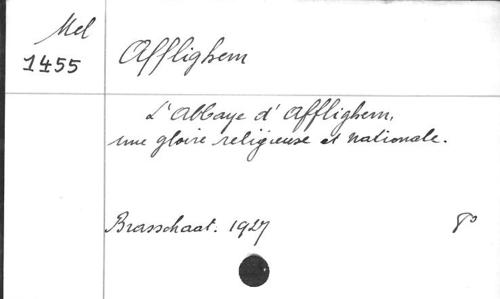 Mel
1455
Afflighem
L'Abbaye d'Afflighem,
une gloire religieuse et nationale.
Brasschaat. 1927
8°